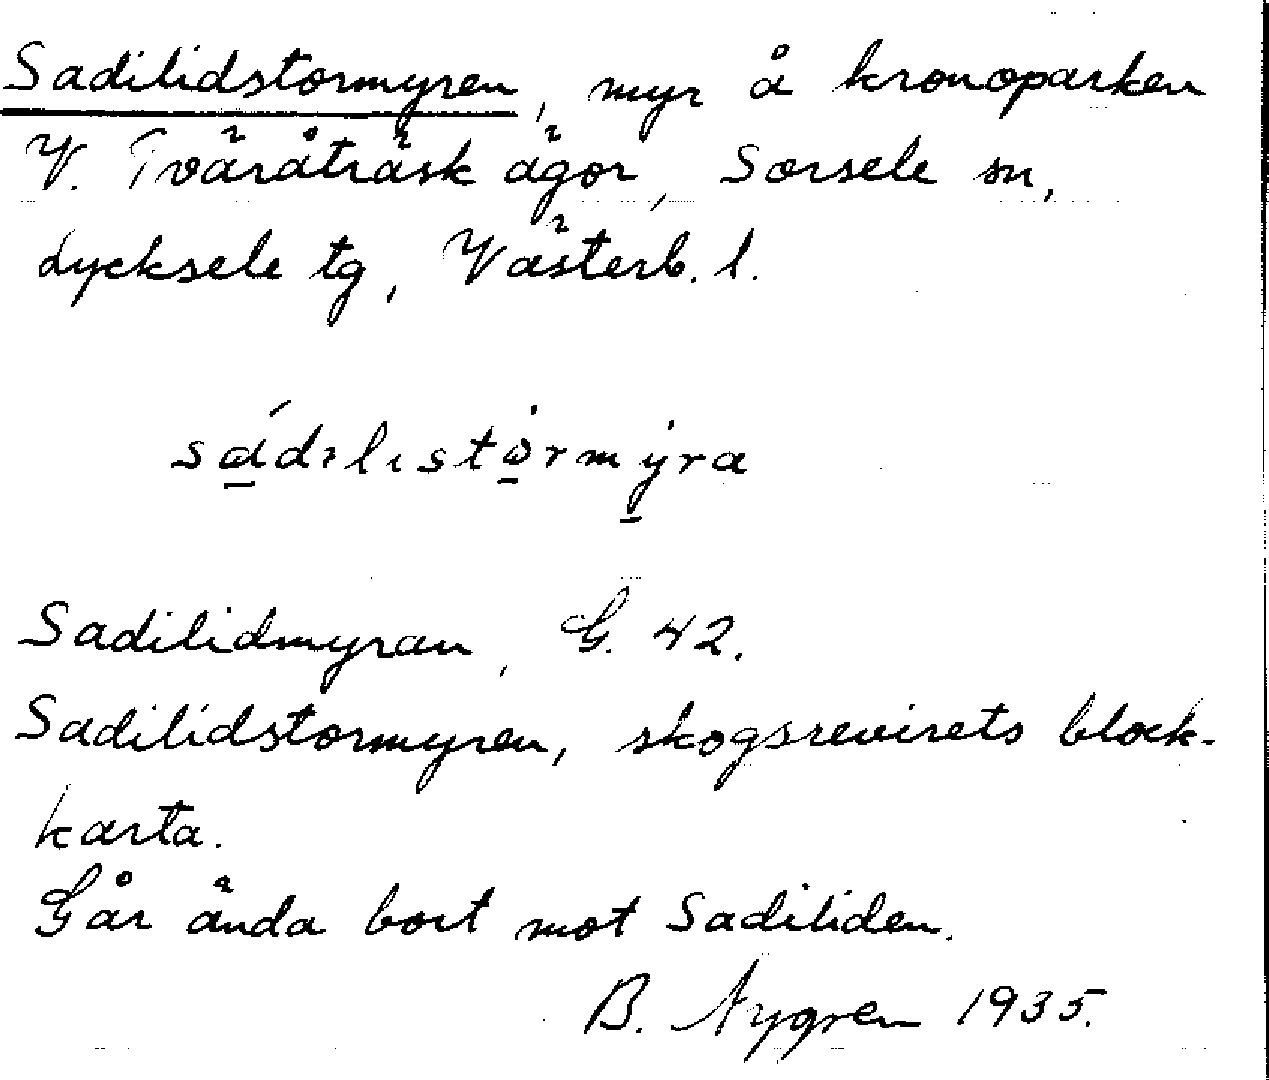 Sadilidstormyren, myr å kronoparken
V. Tväråträsk ägor, Sorsele sn,
Lycksele tg, Västerb. l.
sád⁠ılıstörmýra
Sadilidmyran, G. 42.
Sadilidstormyren, skogsrevirets block-
karta.
Går ända bort mot Sadiliden.
B. Nygren 1935.